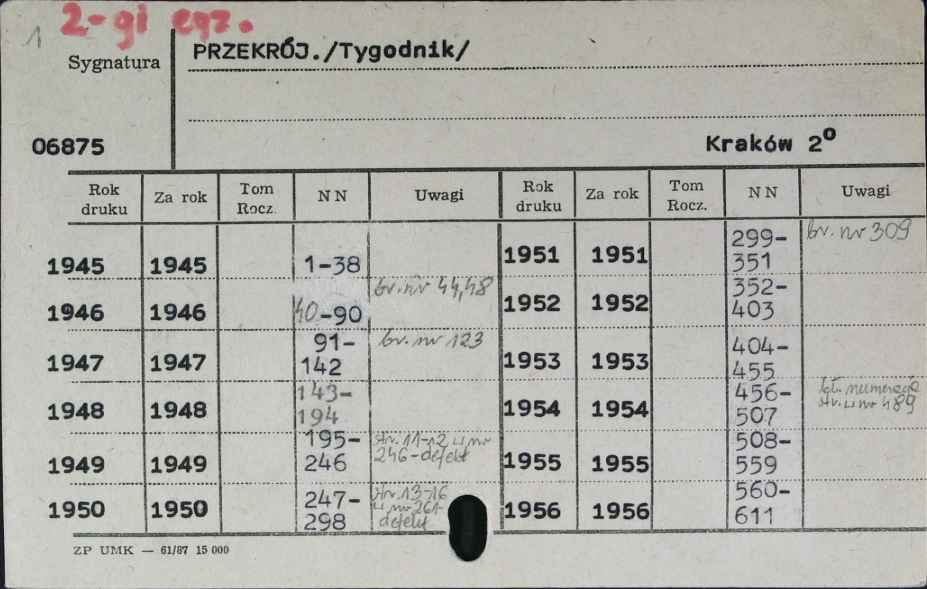 1 2-gi egz.
Sygnatura PRZEKRÓJ./Tygodnik/
06875 Kraków 2°
Rok druku Za rok Tom Rocz. NN Uwagi Rok druku Za rok Tom Rocz. NN Uwagi
1945 1945 1-38 1951 1951 299-351 br. nr 309
1946 1946 40-90 br. nr 44,48 1952 1952 352-403
1947 1947 91-142 br. nr 123 1953 1953 404-455
1948 1948 143-194 1954 1954 456-507 bł. numeracja str. w nr 489
1949 1949 195-246 str. 11-12 w nr 246-defekt 1955 1955 508-559
1950 1950 247-298 str. 13-16 w nr 261-defekt 1956 1956 560-611
ZP UMK — 61/87 15 000